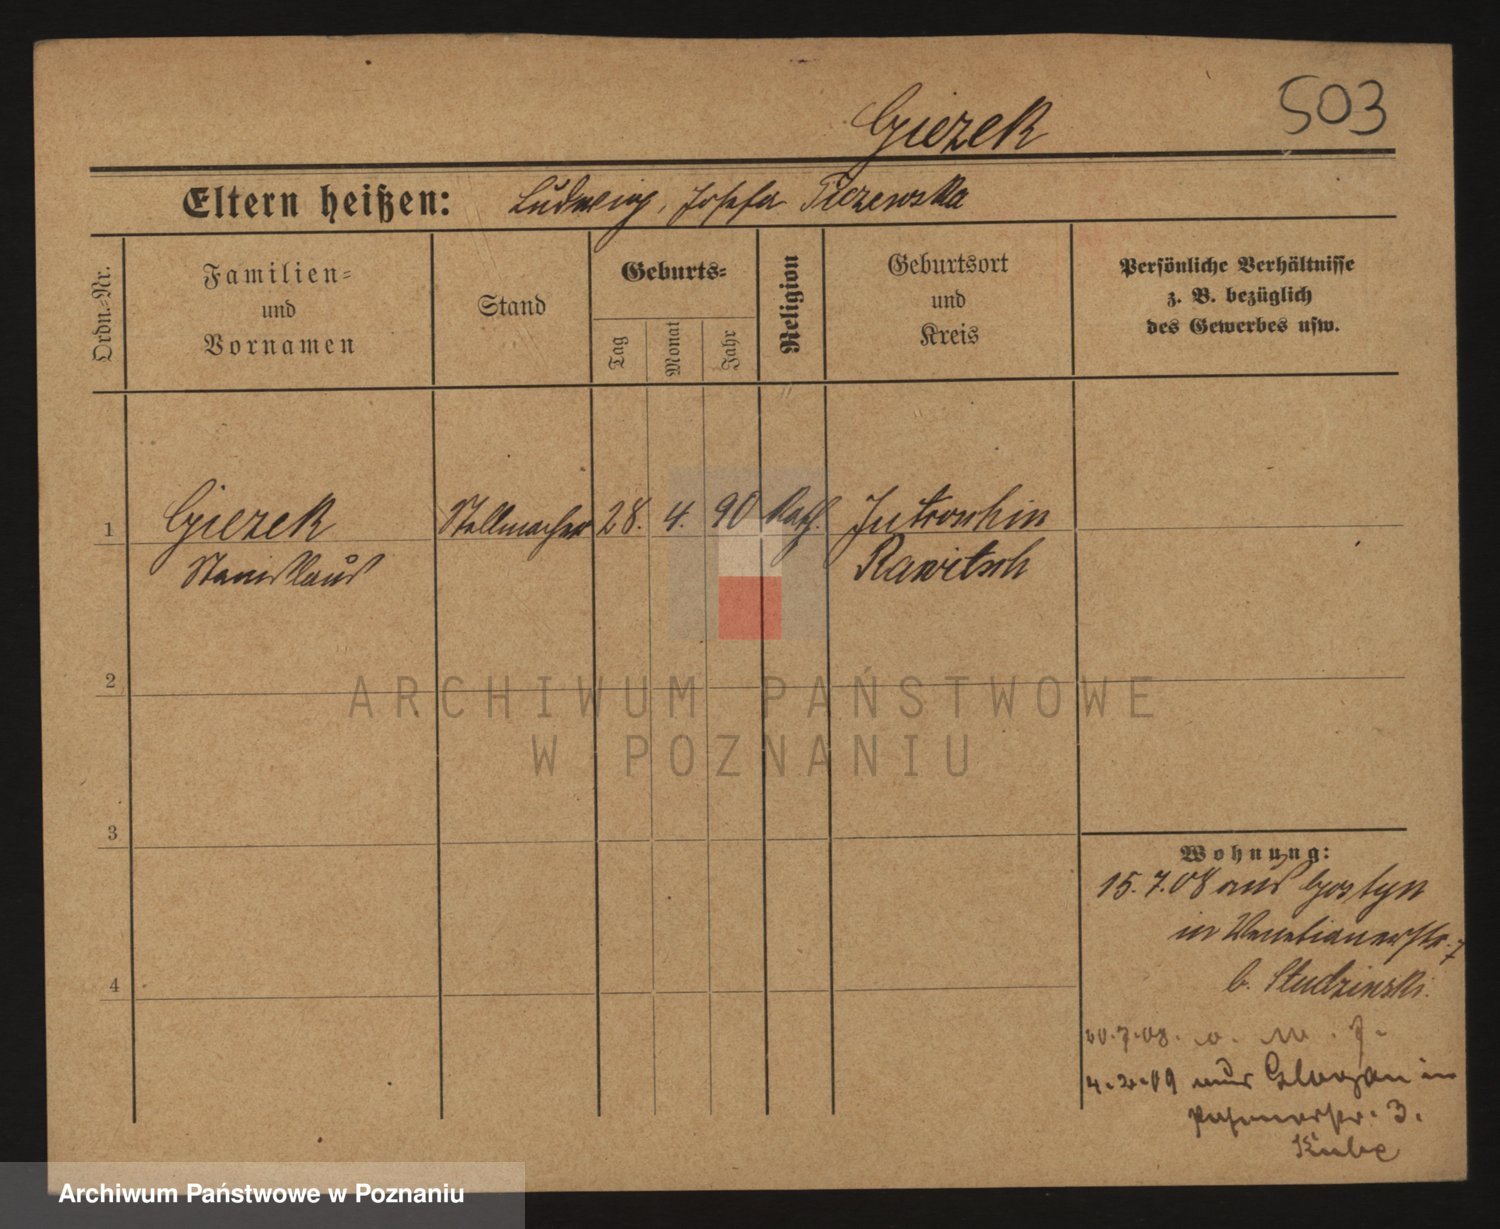 Giezek
503
Eltern heißen: Ludwig, Josefa
Ordn.-Nr.
Familien-
und
Vornamen
Stand
Geburts-
Tag
Monat
Jahr
Religion
Geburtsort
und
Kreis
Persönliche Verhältnisse
z. B. bezüglich
des Gewerbes usw.
1
Giezek
Stanislaus
Stellmacher
28.
4.
90
Kath.
Jutroschin
Rawitsch
2
ARCHIWUM PAŃSTWOWE
W POZNANIU
3
Wohnung:
15.7.08 aus Gostyn
in Venetianerstr. 7
b. Studzinski.
4
20.7.08.
aus Glogau in
3.
Kube
Archiwum Państwowe w Poznaniu